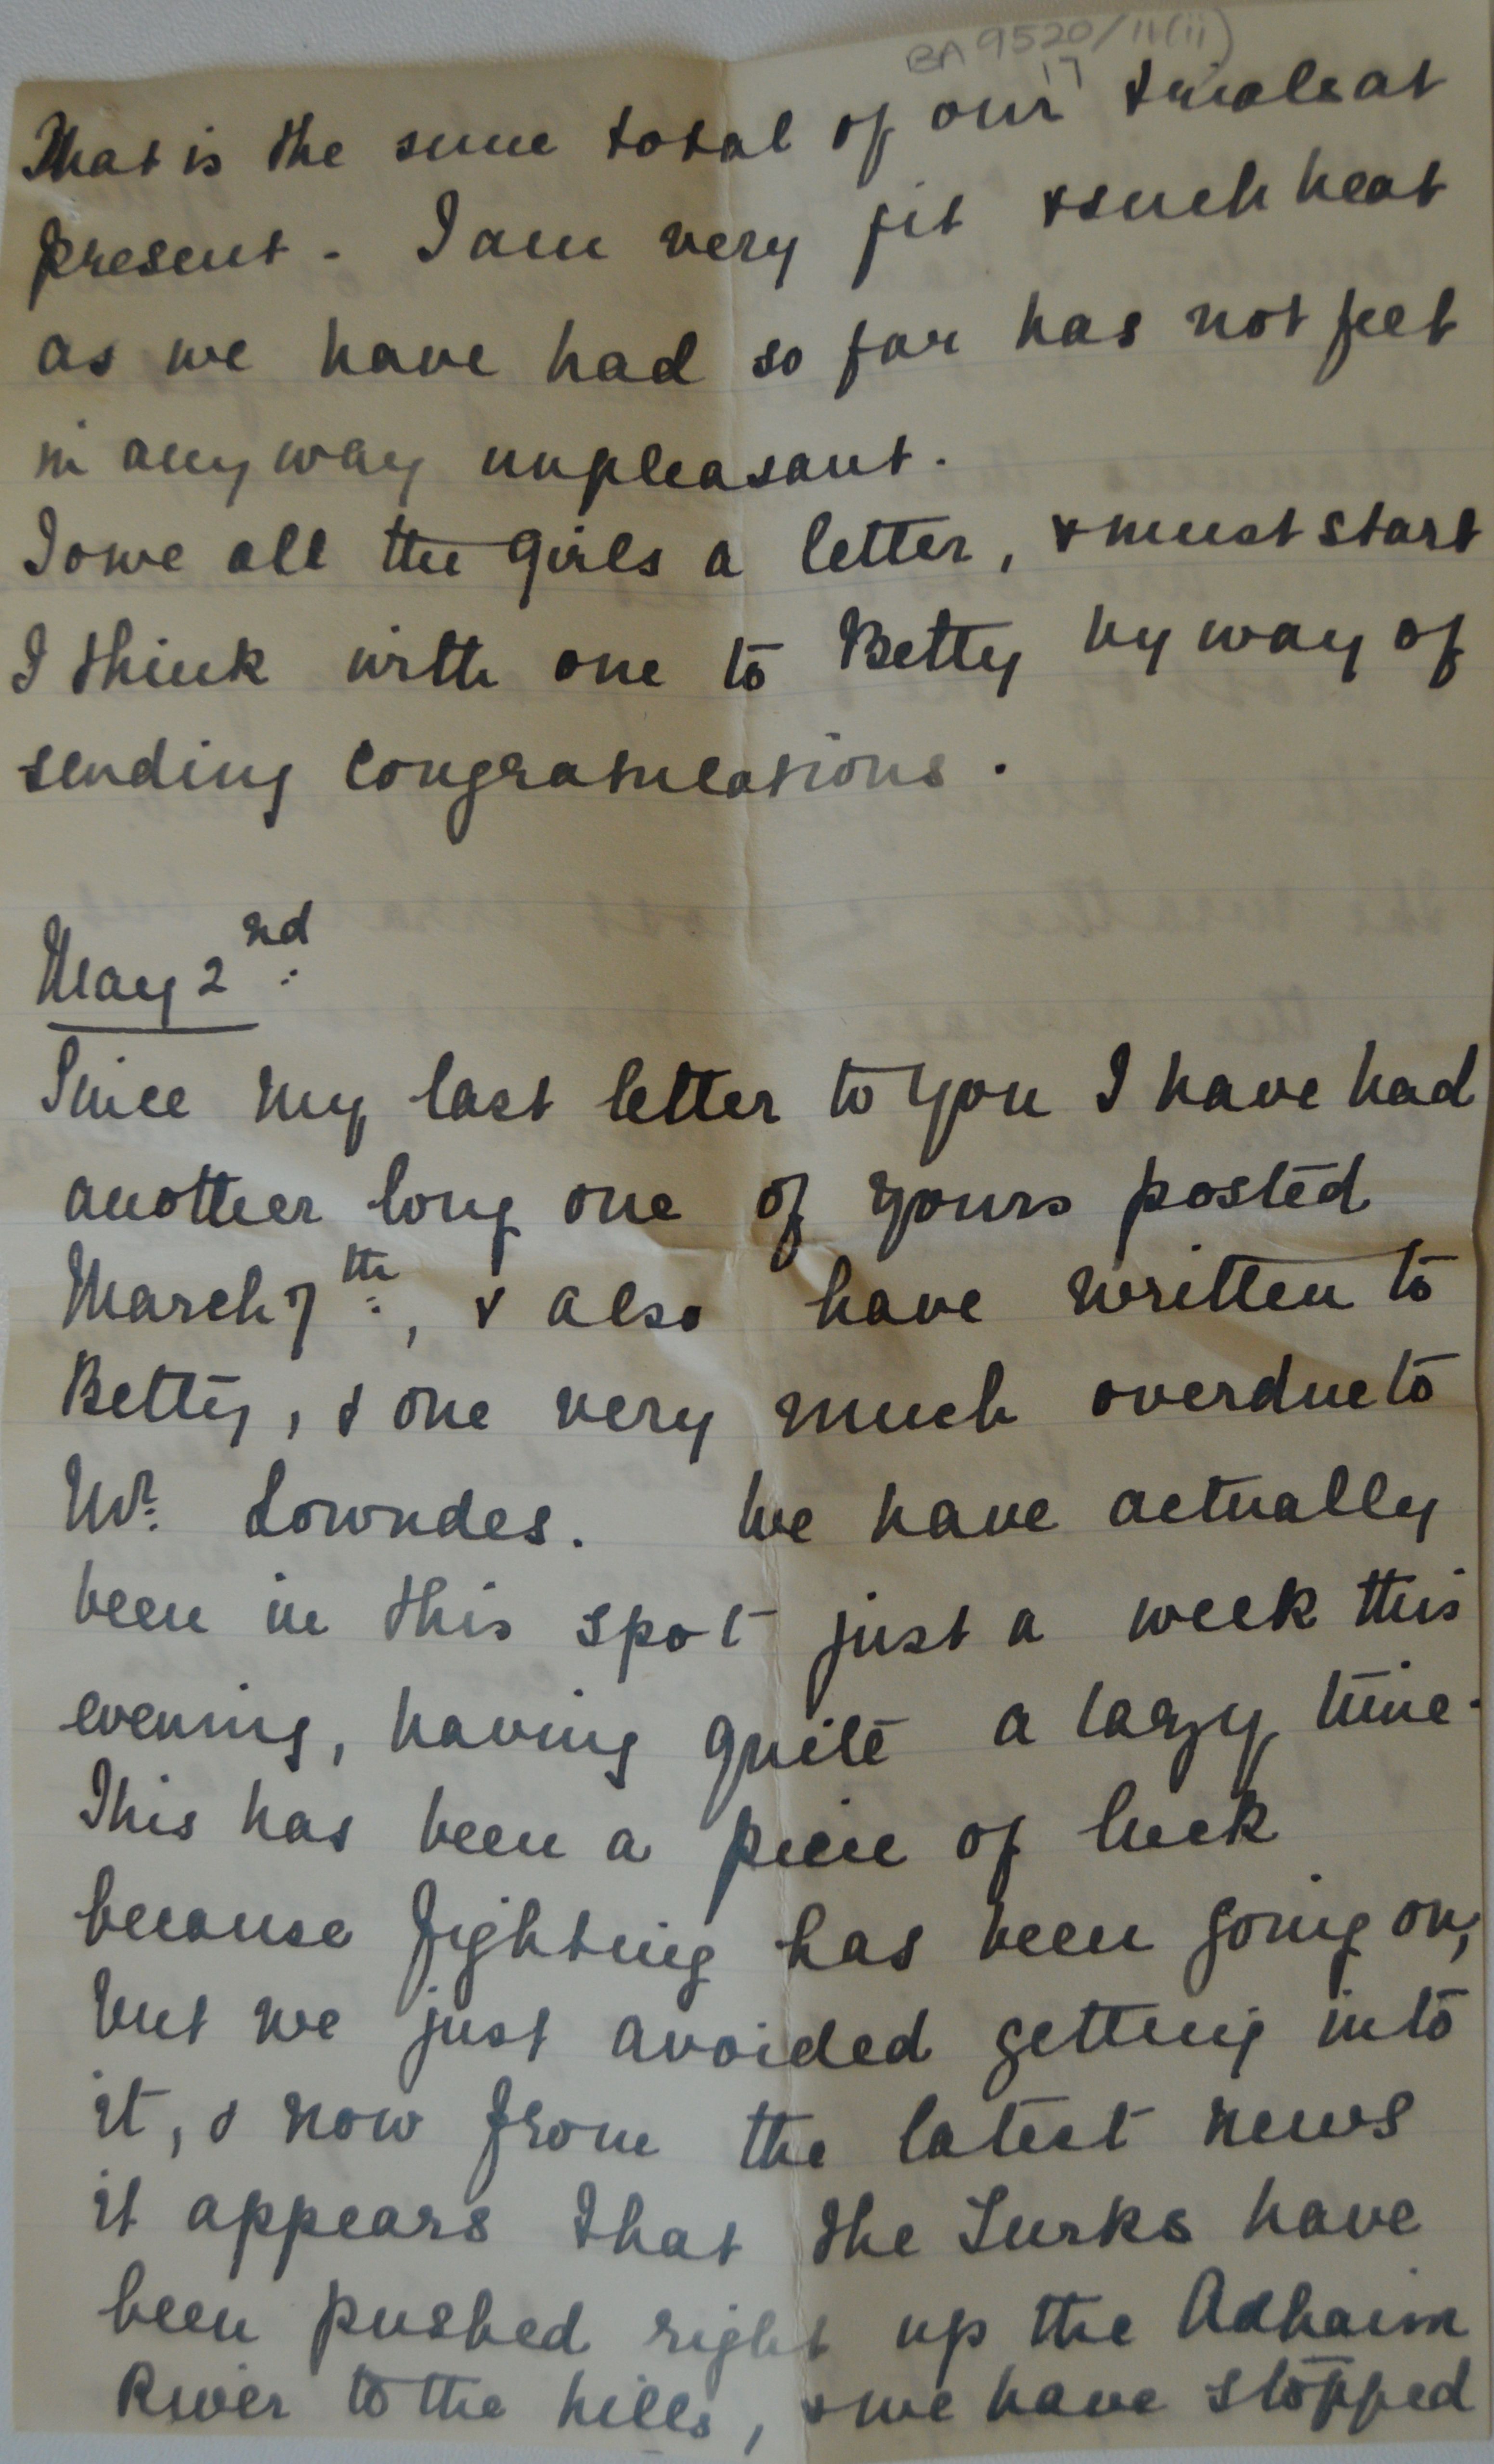 BA 9520/11(ii)
17
That is the sum total of our trials at
present. I am very fit & such heat
as we have had so far has not felt
in any way unpleasant.
I owe all the girls a letter, & must start
I think with one to Betty by way of
sending congratulations.
May 2nd
Since my last letter to you I have had
another long one of yours posted
March 7th, & also have written to
Betty, & one very much overdue to
Mr. Lowndes. We have actually
been in this spot just a week this
evening, having quite a lazy time.
This has been a piece of luck
because fighting has been going on,
but we just avoided getting into
it, & now from the latest news
it appears that the Turks have
been pushed right up the Adhaim
River to the hills, & we have stopped